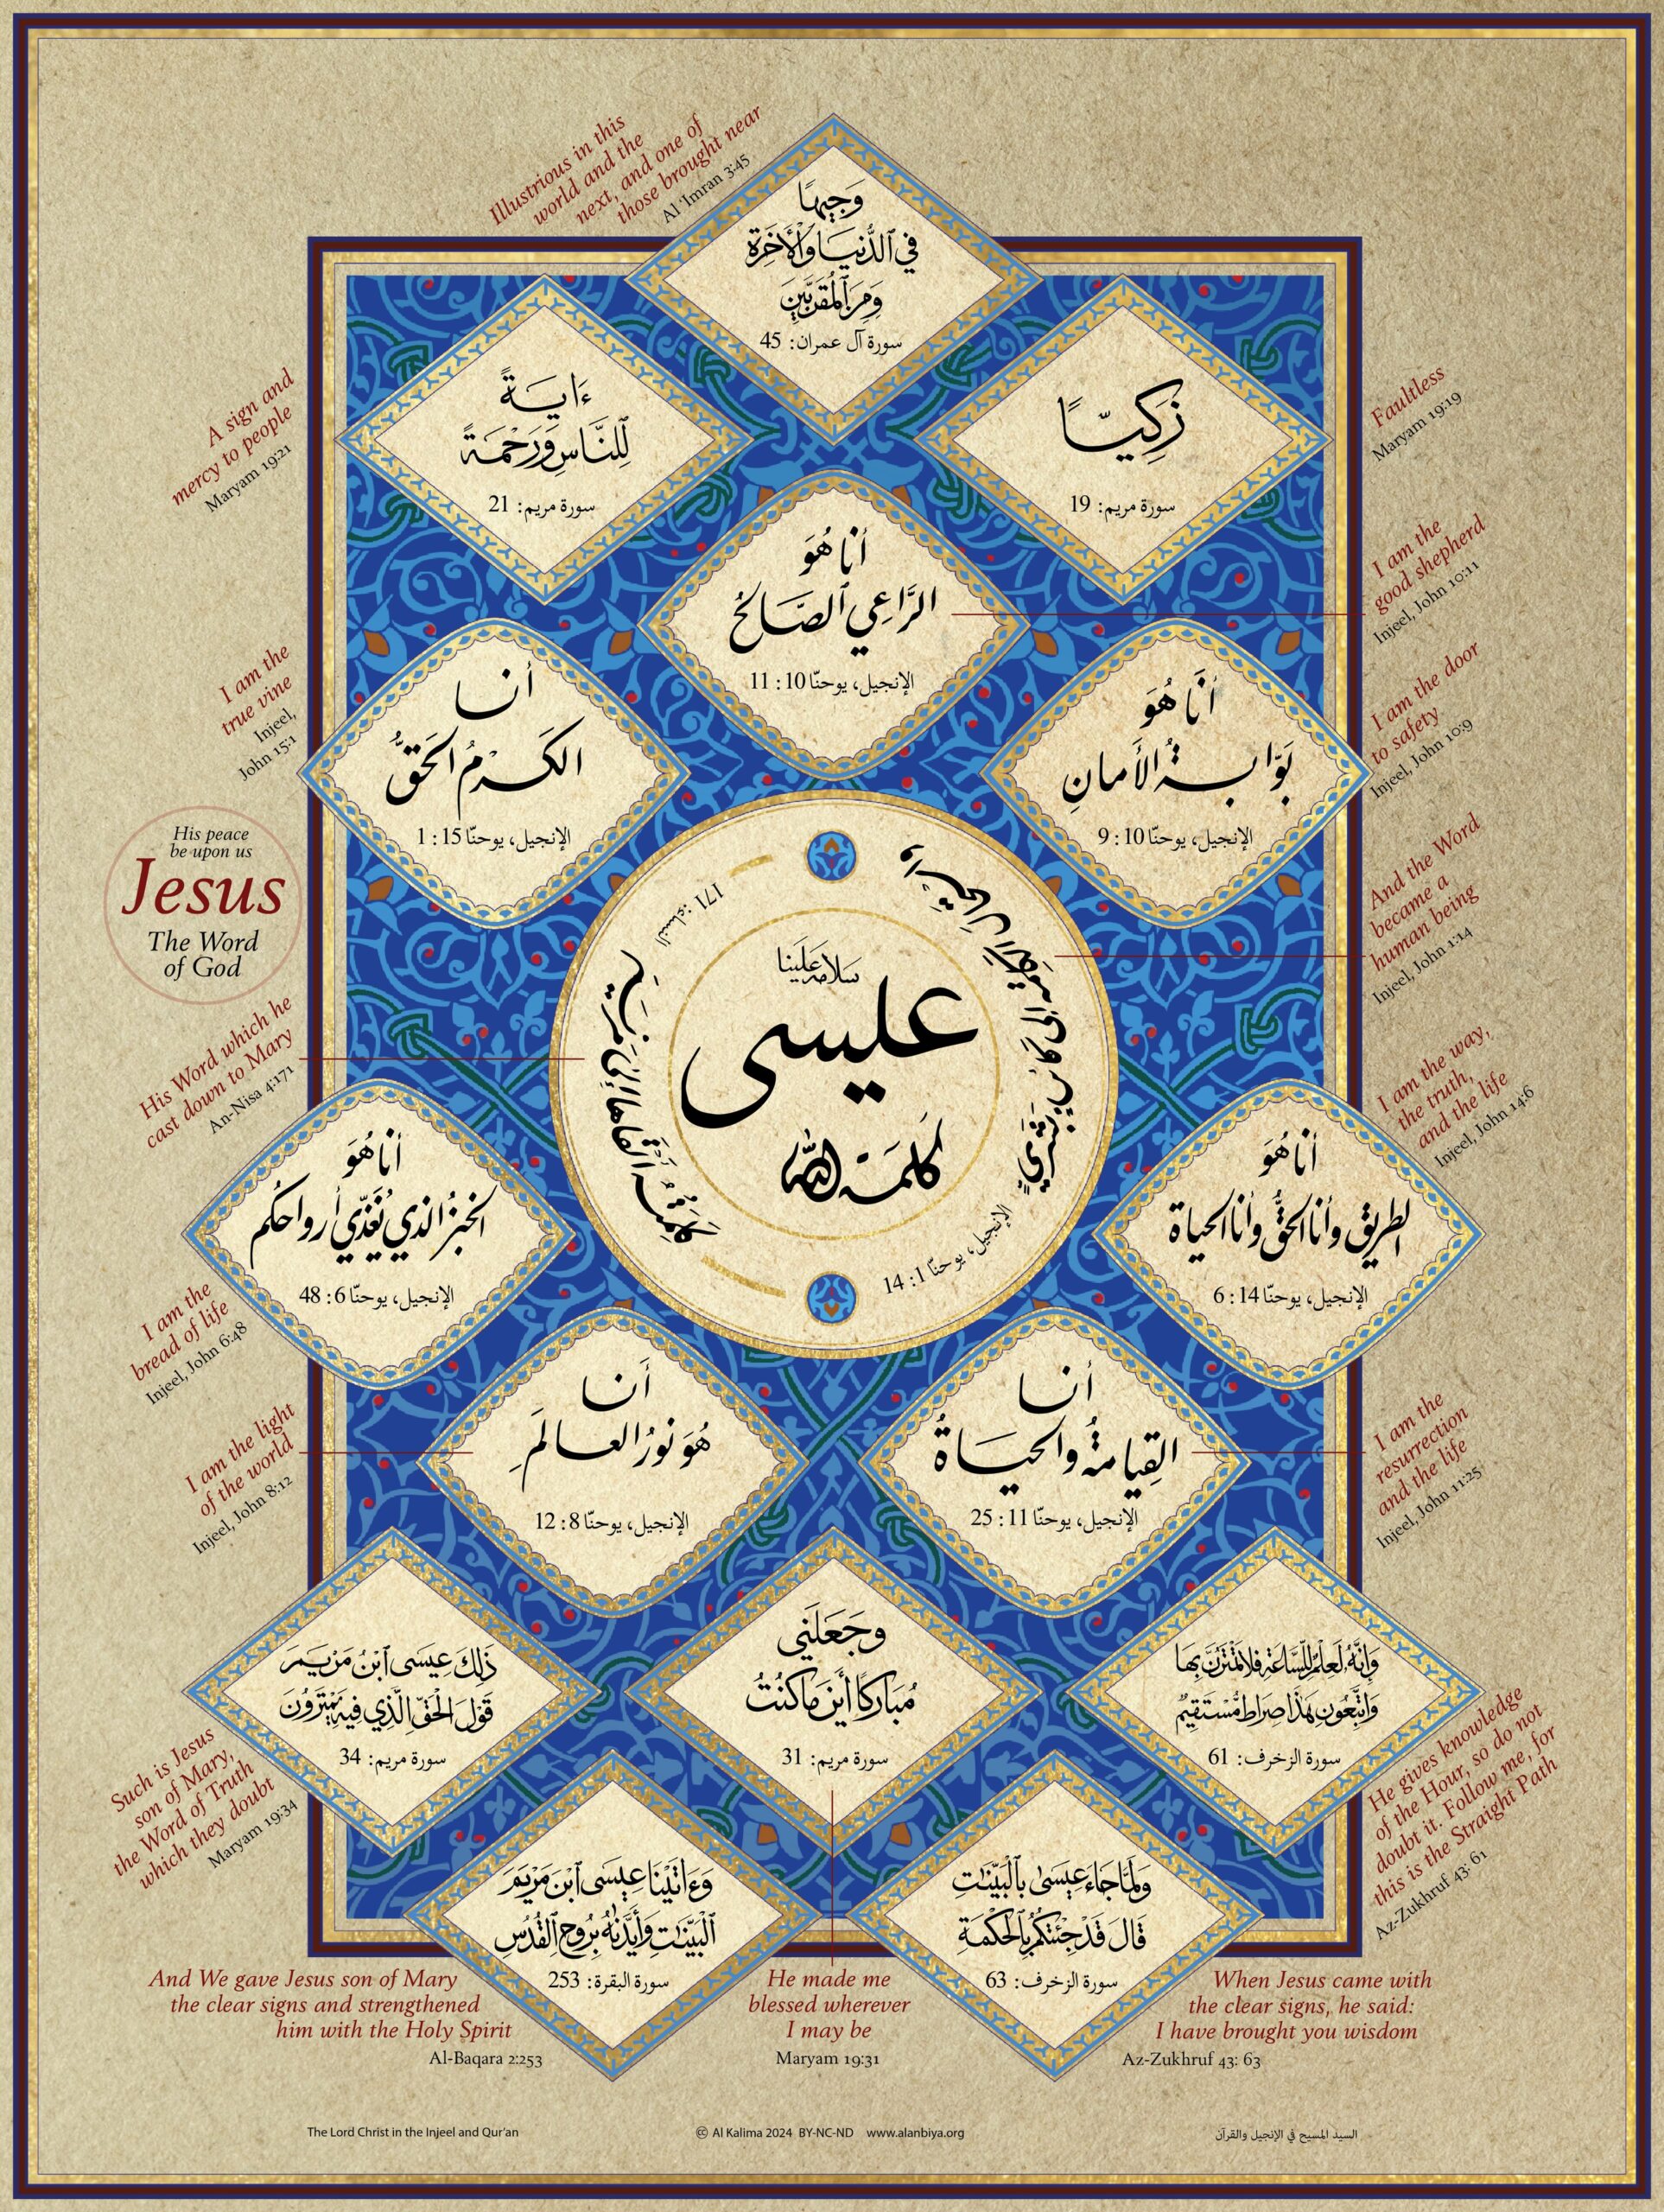 Illustrious in this
world and the
next, and one of
those brought near
Al 'Imran 3:45
وَجِيهًا
فِي ٱلدُّنْيَا وَٱلْأَخِرَةِ
وَمِنَ ٱلْمُقَرَّبِينَ
سورة آل عمران: 45
A sign and
mercy to people
Maryam 19:21
ءَايَةً
لِّلنَّاسِ وَرَحْمَةً
سورة مريم: 21
زَكِيًّا
سورة مريم: 19
Faultless
Maryam 19:19
أنا هُوَ
الرَّاعِي ٱلصَّالِحُ
الإنجيل، يوحنّا 10: 11
I am the
good shepherd
Injeel, John 10:11
I am the
true vine
Injeel,
John 15:1
أنا
الكَرْمُ الحَقُّ
الإنجيل، يوحنّا 15: 1
أنَا هُوَ
بَوّابةُ الأَمانِ
الإنجيل، يوحنّا 10: 9
I am the door
to safety
Injeel, John 10:9
His peace
be upon us
Jesus
The Word
of God
سلامه علينا
عيسى
كلمة الله
النساء: 171
الإنجيل، يوحنّا 1: 14
And the Word
became a
human being
Injeel, John 1:14
His Word which he
cast down to Mary
An-Nisa 4:171
I am the way,
the truth,
and the life
Injeel, John 14:6
أنا هُوَ
الخبزُ الذي تُغَذّي أرواحكُم
الإنجيل، يوحنّا 6: 48
I am the
bread of life
Injeel, John 6:48
أنا هُوَ
الطريقُ وأنا الحقُّ وأنا الحياة
الإنجيل، يوحنّا 14: 6
I am the light
of the world
Injeel, John 8:12
أَنا
هُوَ نورُ العالمَِ
الإنجيل، يوحنّا 8: 12
أنا
القِيامةُ والحياةُ
الإنجيل، يوحنّا 11: 25
I am the
resurrection
and the life
Injeel, John 11:25
ذَٰلِكَ عِيسَى ٱبْنُ مَرْيَمَ
قَوْلَ الْحَقِّ الَّذِي فِيهِ يَمْتَرُونَ
سورة مريم: 34
Such is Jesus
son of Mary,
the Word of Truth
which they doubt
Maryam 19:34
وجَعَلَنِي
مُبَارَكًا أَيْنَ مَا كُنْتُ
سورة مريم: 31
وَإِنَّهُ لَعِلْمٌ لِلسَّاعَةِ فَلَا تَمْتَرُنَّ بِهَا
وَاتَّبِعُونِ هَذَا صِرَاطٌ مُّسْتَقِيمٌ
سورة الزخرف: 61
He gives knowledge
of the Hour, so do not
doubt it. Follow me, for
this is the Straight Path
Az-Zukhruf 43: 61
وَءَاتَيْنَا عِيسَى ٱبْنَ مَرْيَمَ
ٱلْبَيِّنَٰتِ وَأَيَّدْنَٰهُ بِرُوحِ ٱلْقُدُسِ
سورة البقرة: 253
And We gave Jesus son of Mary
the clear signs and strengthened
him with the Holy Spirit
Al-Baqara 2:253
He made me
blessed wherever
I may be
Maryam 19:31
وَلَمَّا جَاءَ عِيسَىٰ بِٱلْبَيِّنَٰتِ
قَالَ قَدْ جِئْتُكُم بِٱلْحِكْمَةِ
سورة الزخرف: 63
When Jesus came with
the clear signs, he said:
I have brought you wisdom
Az-Zukhruf 43: 63
The Lord Christ in the Injeel and Qur'an
Al Kalima 2024 BY-NC-ND www.alanbiya.org
السيد المسيح في الإنجيل والقرآن